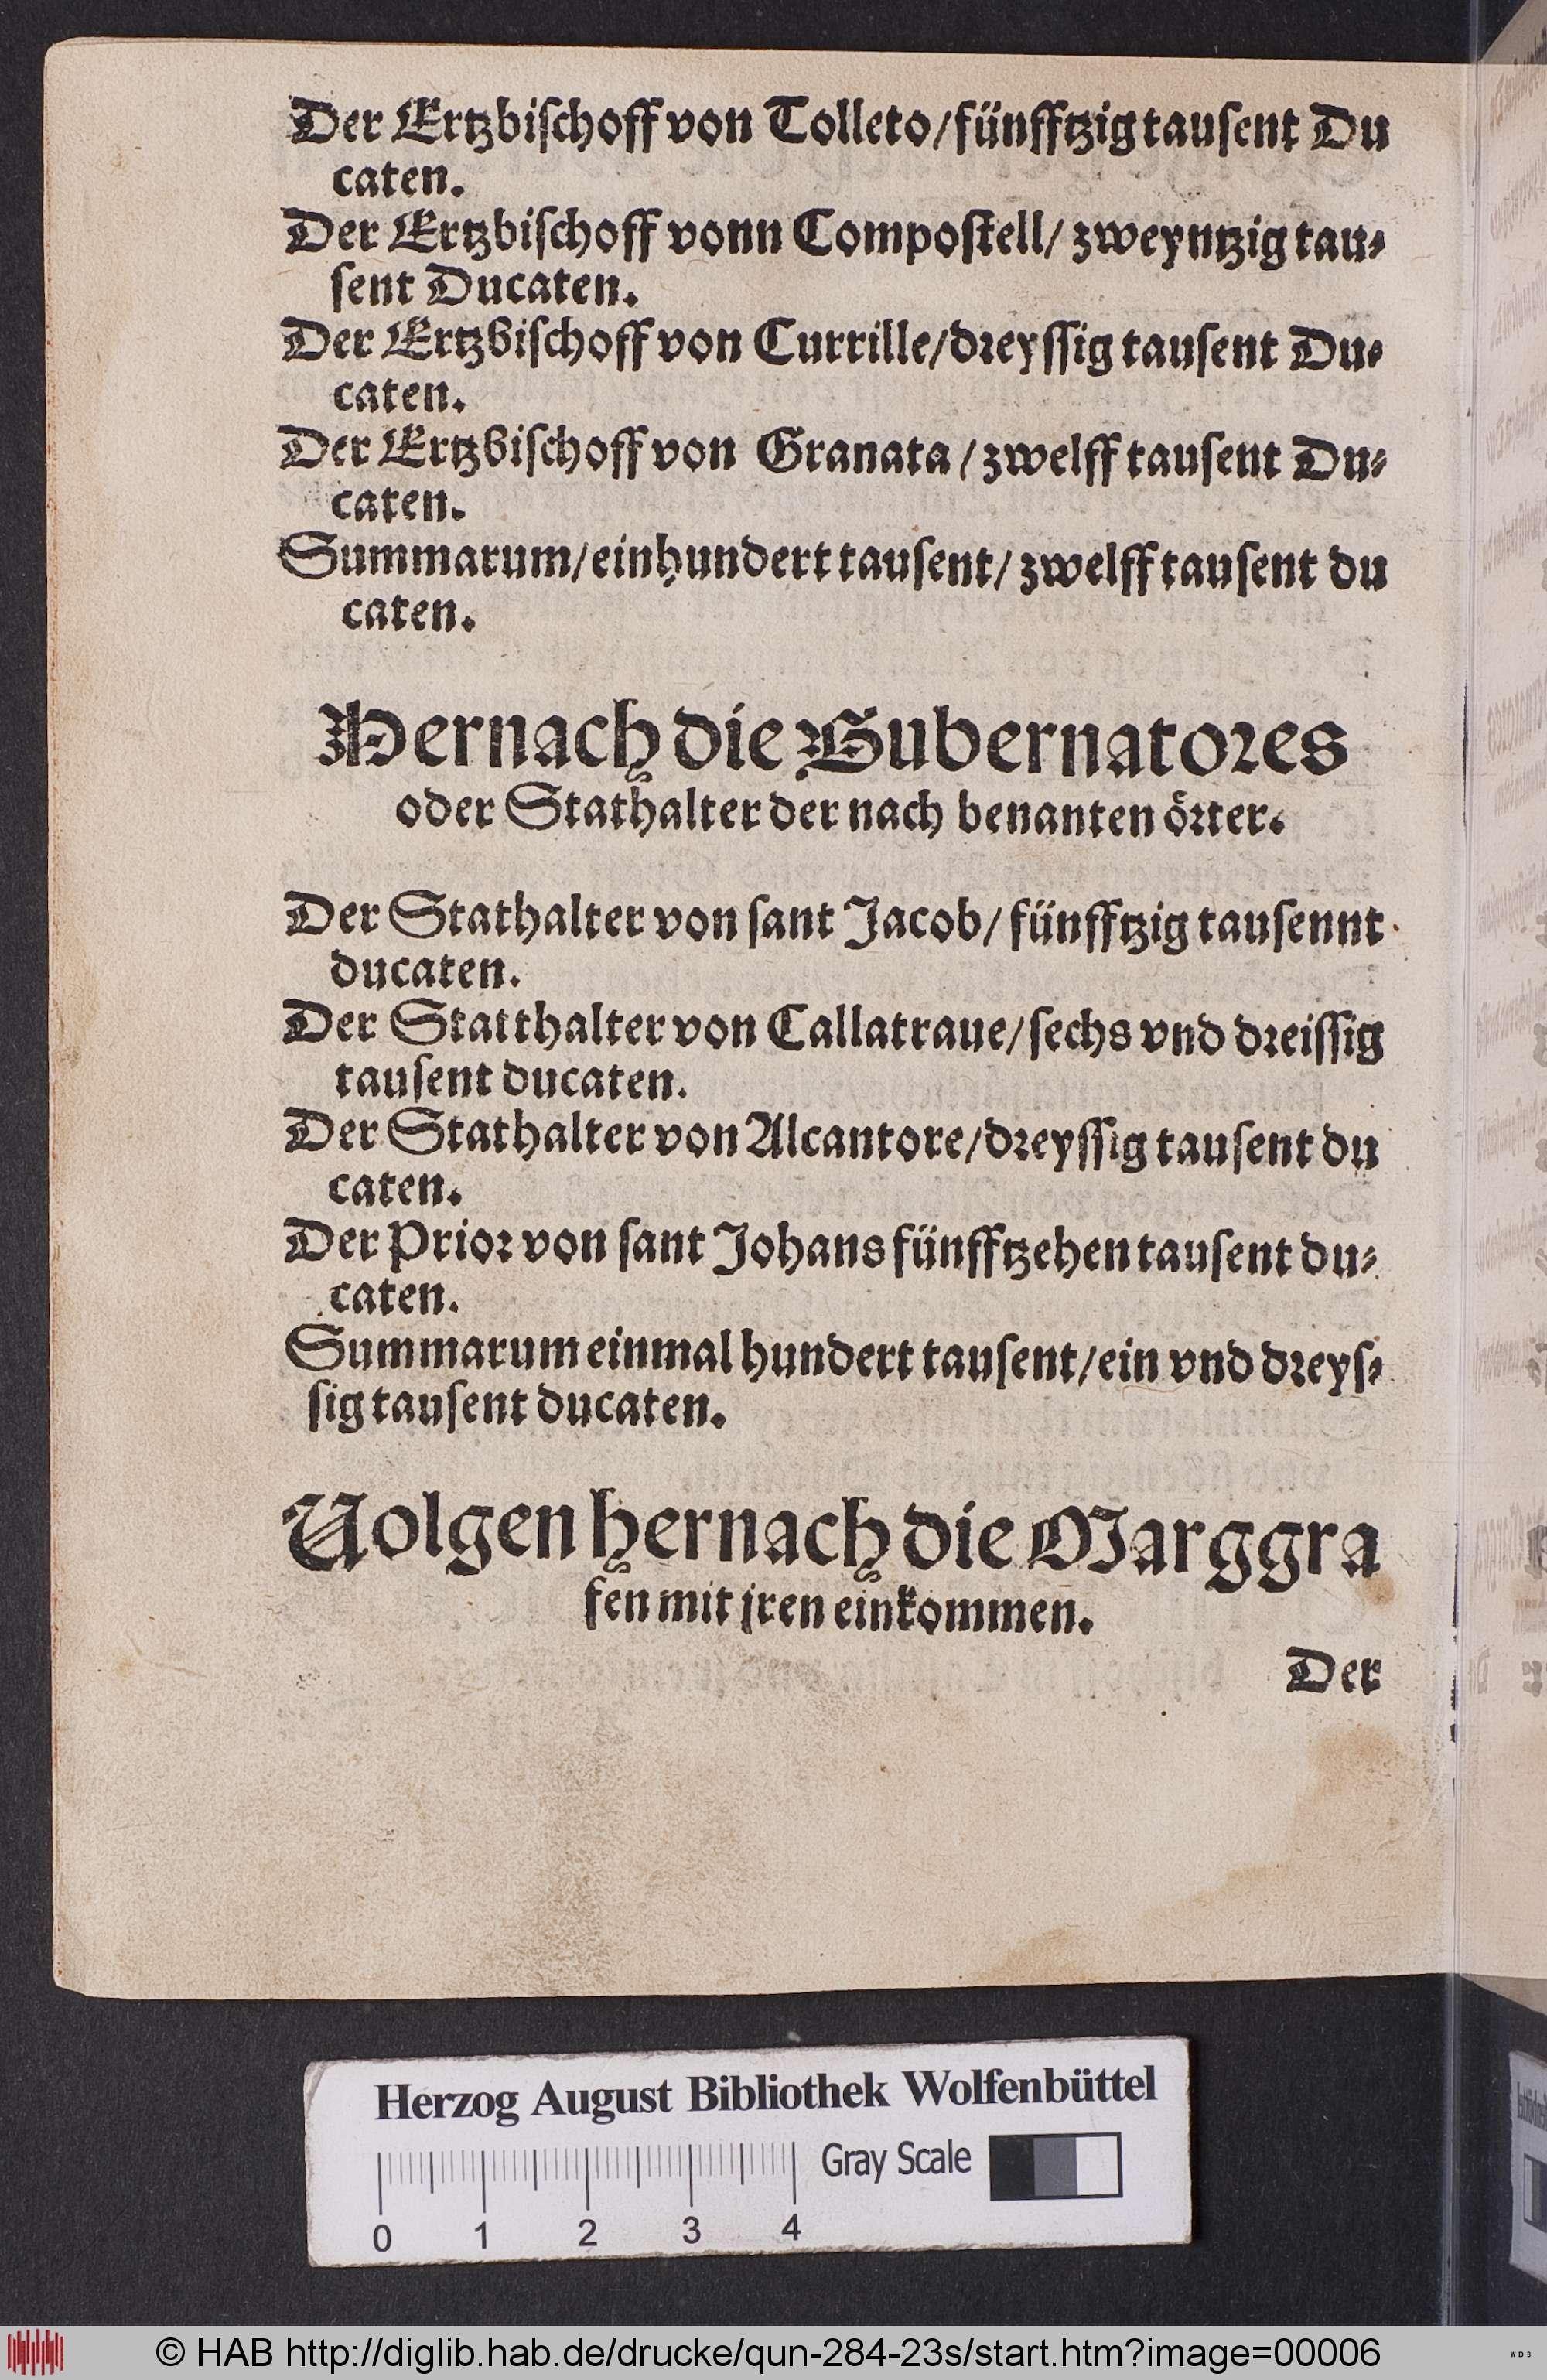 Der Ertzbiſchoff von Tolleto/fünfftzig tauſent Du
caten.
Der Ertzbiſchoff vonn Compoſtell/ zweyntzig tau⸗
ſent Ducaten.
Der Ertzbiſchoff von Currille/dreyſſig tauſent Du⸗
caten.
Der Ertzbiſchoff von Granata/zwelff tauſent Du⸗
caten.
Summarum/einhundert tauſent/ zwelff tauſent du
caten.
Hernach die Gubernatores
oder Stathalter der nach benanten örter.
Der Stathalter von ſant Jacob/ fünfftzig tauſennt
ducaten.
Der Statthalter von Callatraue/ſechs vnd dreiſſig
tauſent ducaten.
Der Stathalter von Alcantore/dreyſſig tauſent du
caten.
Der Prior von ſant Johans fünfftzehen tauſent du⸗
caten.
Summarum einmal hundert tauſent/ein vnd dreyſ⸗
ſig tauſent ducaten.
Uolgen hernach die Marggra
fen mit jren einkommen.
Der
Herzog August Bibliothek Wolfenbüttel
Gray Scale
0 1 2 3 4
© HAB http://diglib.hab.de/drucke/qun-284-23s/start.htm?image=00006
WDB